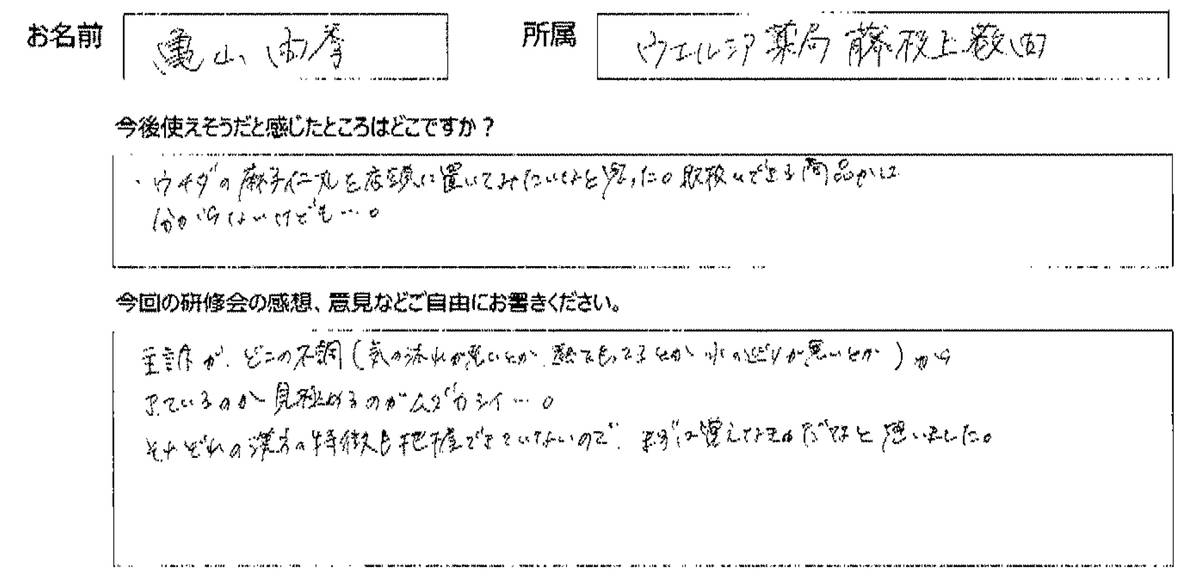 お名前 亀山 由季 所属 ウエルシア薬局 藤枝上薮田
今後使えそうだと感じたところはどこですか？
・ウチダの麻子仁丸を店頭に置いてみたいなと思った。取扱いできる商品かは
分からないけども…。
今回の研修会の感想、意見などご自由にお書きください。
主訴が、どこの不調（気の流れが悪いとか、熱でもってるとか 水の巡りが悪いとか）から
きているのか見極めるのがムズカシイ…。
それぞれの漢方の特徴も把握できていないので、まずは覚えてなきゃだなと思いました。